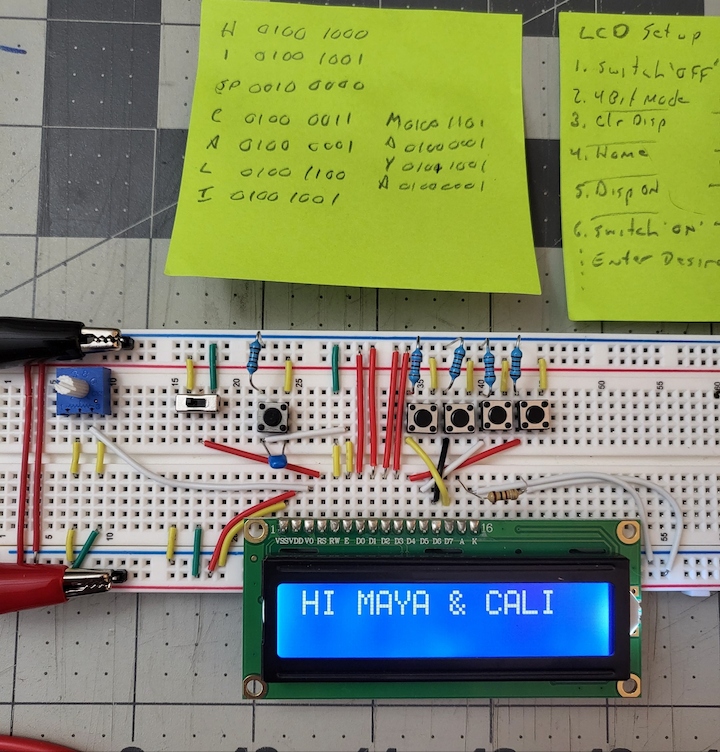 H 0100 1000
I 0100 1001
SP 0010 0000
C 0100 0011
A 0100 0001
L 0100 1100
I 0100 1001
M 0100 1101
A 0100 0001
Y 0101 1001
A 0100 0001
LCD Setup
1. Switch 'OFF'
2. 4Bit Mode
3. Clr Disp
4. Home
5. Disp ON
6. Switch 'ON'
Enter Desire
1 5 10 15 20 25 35 40 50 55
5 10 55
1 16
VSS VDD V0 RS RW E D0 D1 D2 D3 D4 D5 D6 D7 A K
HI MAYA & CALI